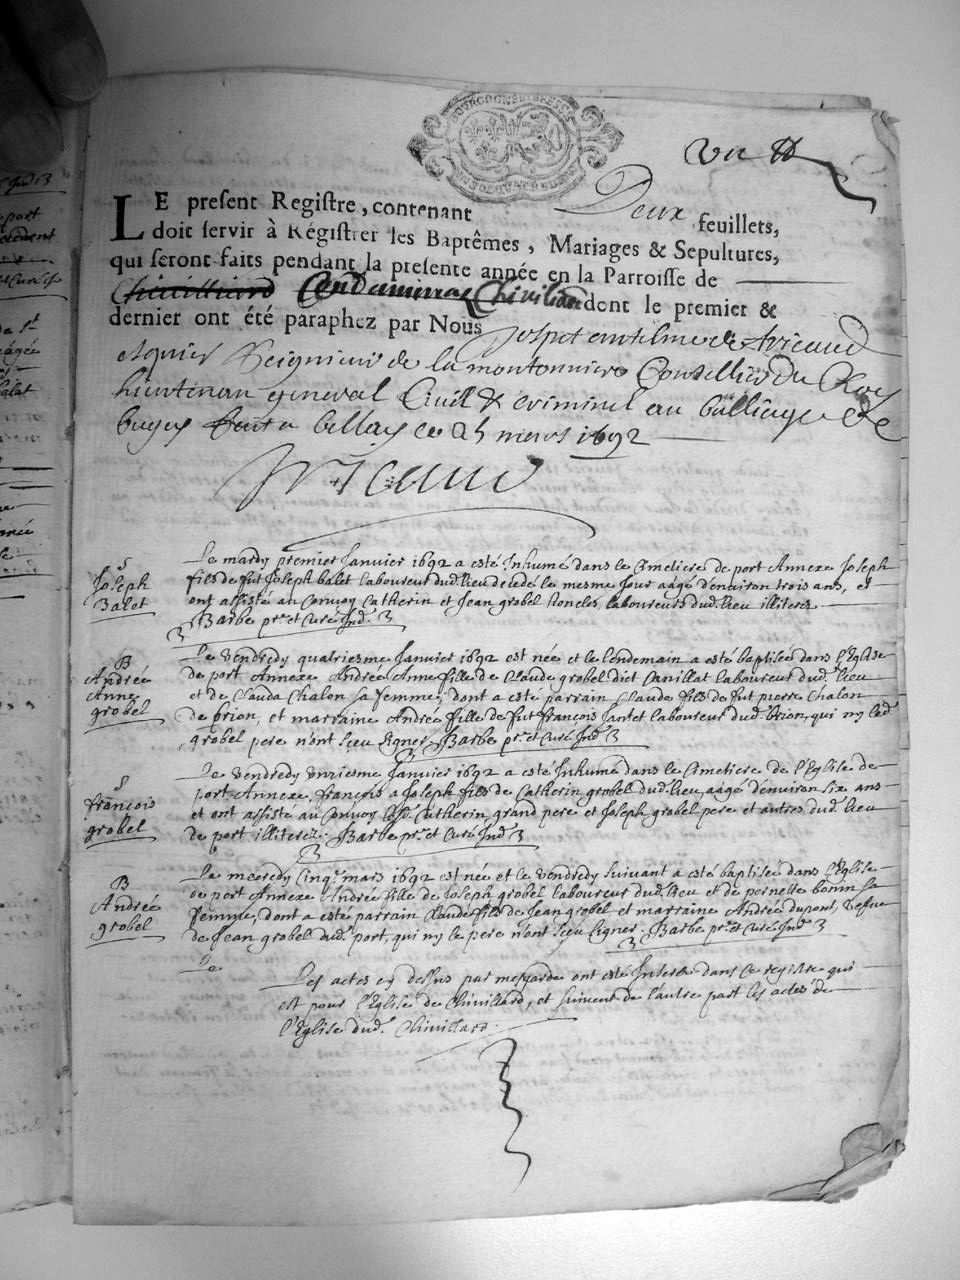 Vu
LE present Registre, contenant Deux feuillets,
doit servir à Régistrer les Baptêmes, Mariages & Sepultures,
qui seront faits pendant la presente année en la Parroisse de
Condamine Chivilliar dont le premier &
dernier ont été paraphez par Nous
Seigneur de la montonniere Conseiller du Roy
lieutenan general Civil & Criminel au bailliage de
bugey 25 mars 1692
S
Joseph
Balet
Le mardy premier Janvier 1692 a esté Inhumé dans le Cimetiere de port Annexe Joseph
fils de fut Joseph balet laboureur dud. lieu decedé le mesme Jour aagé d'environ trois ans, et
ont assisté au Convoy Catherin et Jean grobel laboureurs dud. lieu illiterez
Barbe pr. et Curé Ind.
B
Andrée
Anne
grobel
Le vendredy quatriesme Janvier 1692 est née et le lendemain a esté baptisée dans l'Eglise
de port Annexe Andrée Anne fille de Claude grobel dict Canillat laboureur dud. lieu
et de Clauda Chalon sa femme, dont a esté parrain Claude fils de fut pierre Chalon
de brion, et marraine Andrée fille de fut françois Jantet laboureur dud. brion, qui ny led.
grobel pere n'ont sceu signer Barbe pr. et Curé Ind.
S
françois
grobel
Le vendredy unziesme Janvier 1692 a esté Inhumé dans le Cimetiere de l'Eglise de
port Annexe, françois a Joseph fils de Catherin grobel dud. lieu, aagé d'environ six ans
et ont assisté au Convoy led. Catherin, grand pere et Joseph grobel pere et autres dud. lieu
de port illiterez. Barbe pr. et Curé Ind.
B
Andrée
grobel
Le mecredy Cinq. mars 1692 est née et le vendredy suivant a esté baptisée dans l'Eglise
de port Annexe Andrée fille de Joseph grobel laboureur dud. lieu et de pernette bonin sa
femme, dont a esté parrain Claude fils de Jean grobel et marraine Andrée dupont, vefve
de Jean grobel dud. port, qui ny le pere n'ont sceu signer Barbe pr. et Curé Ind.
Le
Les actes cy dessus par mesgarde ont esté Inserés dans ce registre qui
est pour l'Eglise de Chivillard, et suivent de l'autre part les actes de
l'Eglise dud. Chivillard.